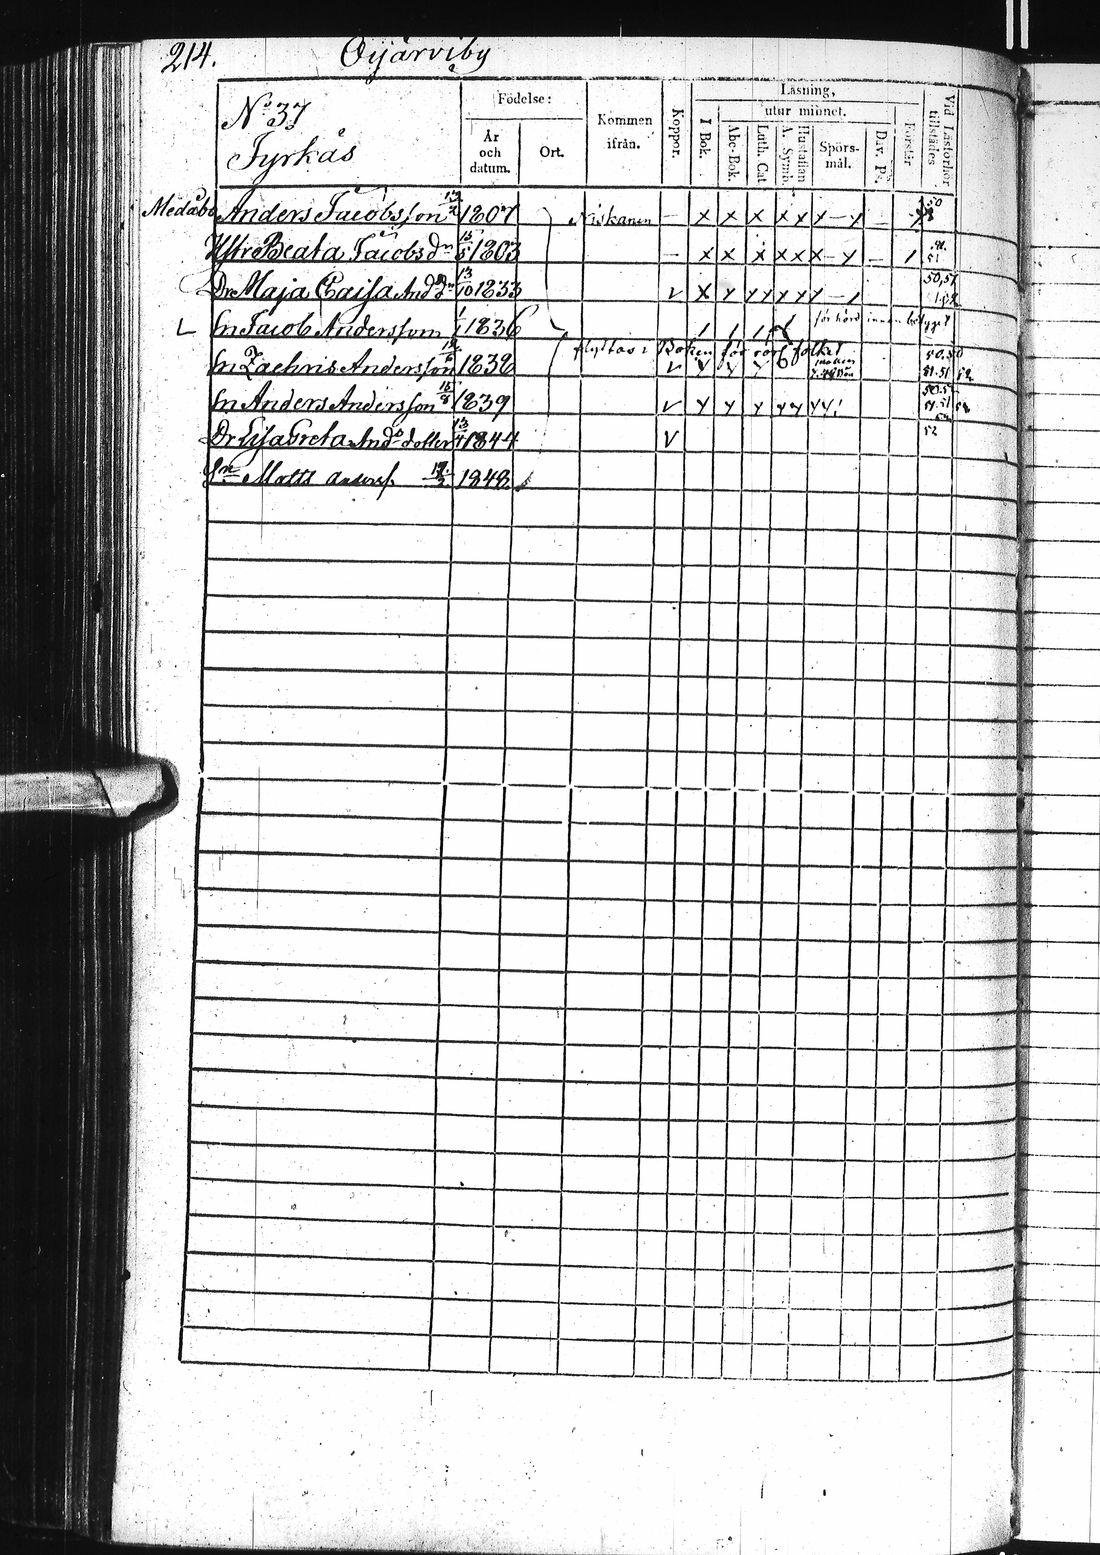 214. Oijärviby
No 37
Tyrkäs
Födelse:
År och datum.
Ort.
Kommen ifrån.
Koppor.
Läsning,
I Bok.
utur minnet.
Abc-Bok.
Luth. Cat
Hustaflan A. Symb.
Spörsmål.
Dav. Ps.
Förstår
Vid Läsförhör tillstädes
Anders Jacobsson 1807 Niskanen — x x x x x x - y — 50
Hstr Beata Jacobsdr 15/5 1803 — x x x x x x - y — 1 51
Dr Maja Caisa And dr 13/10 1833 v x y y y y y y - 50,51
L Sn Jacob Andersson 1/1 1836 1 1 1
flyttas i Boken för
Sn Zachris Andersson 1838 v y y y 51 52
Sn Anders Andersson 15/8 1839 v y y y y y y y
Dr Lisa Greta And dotter 13/4 1844 v 52
Sn Matts Anderss 1848